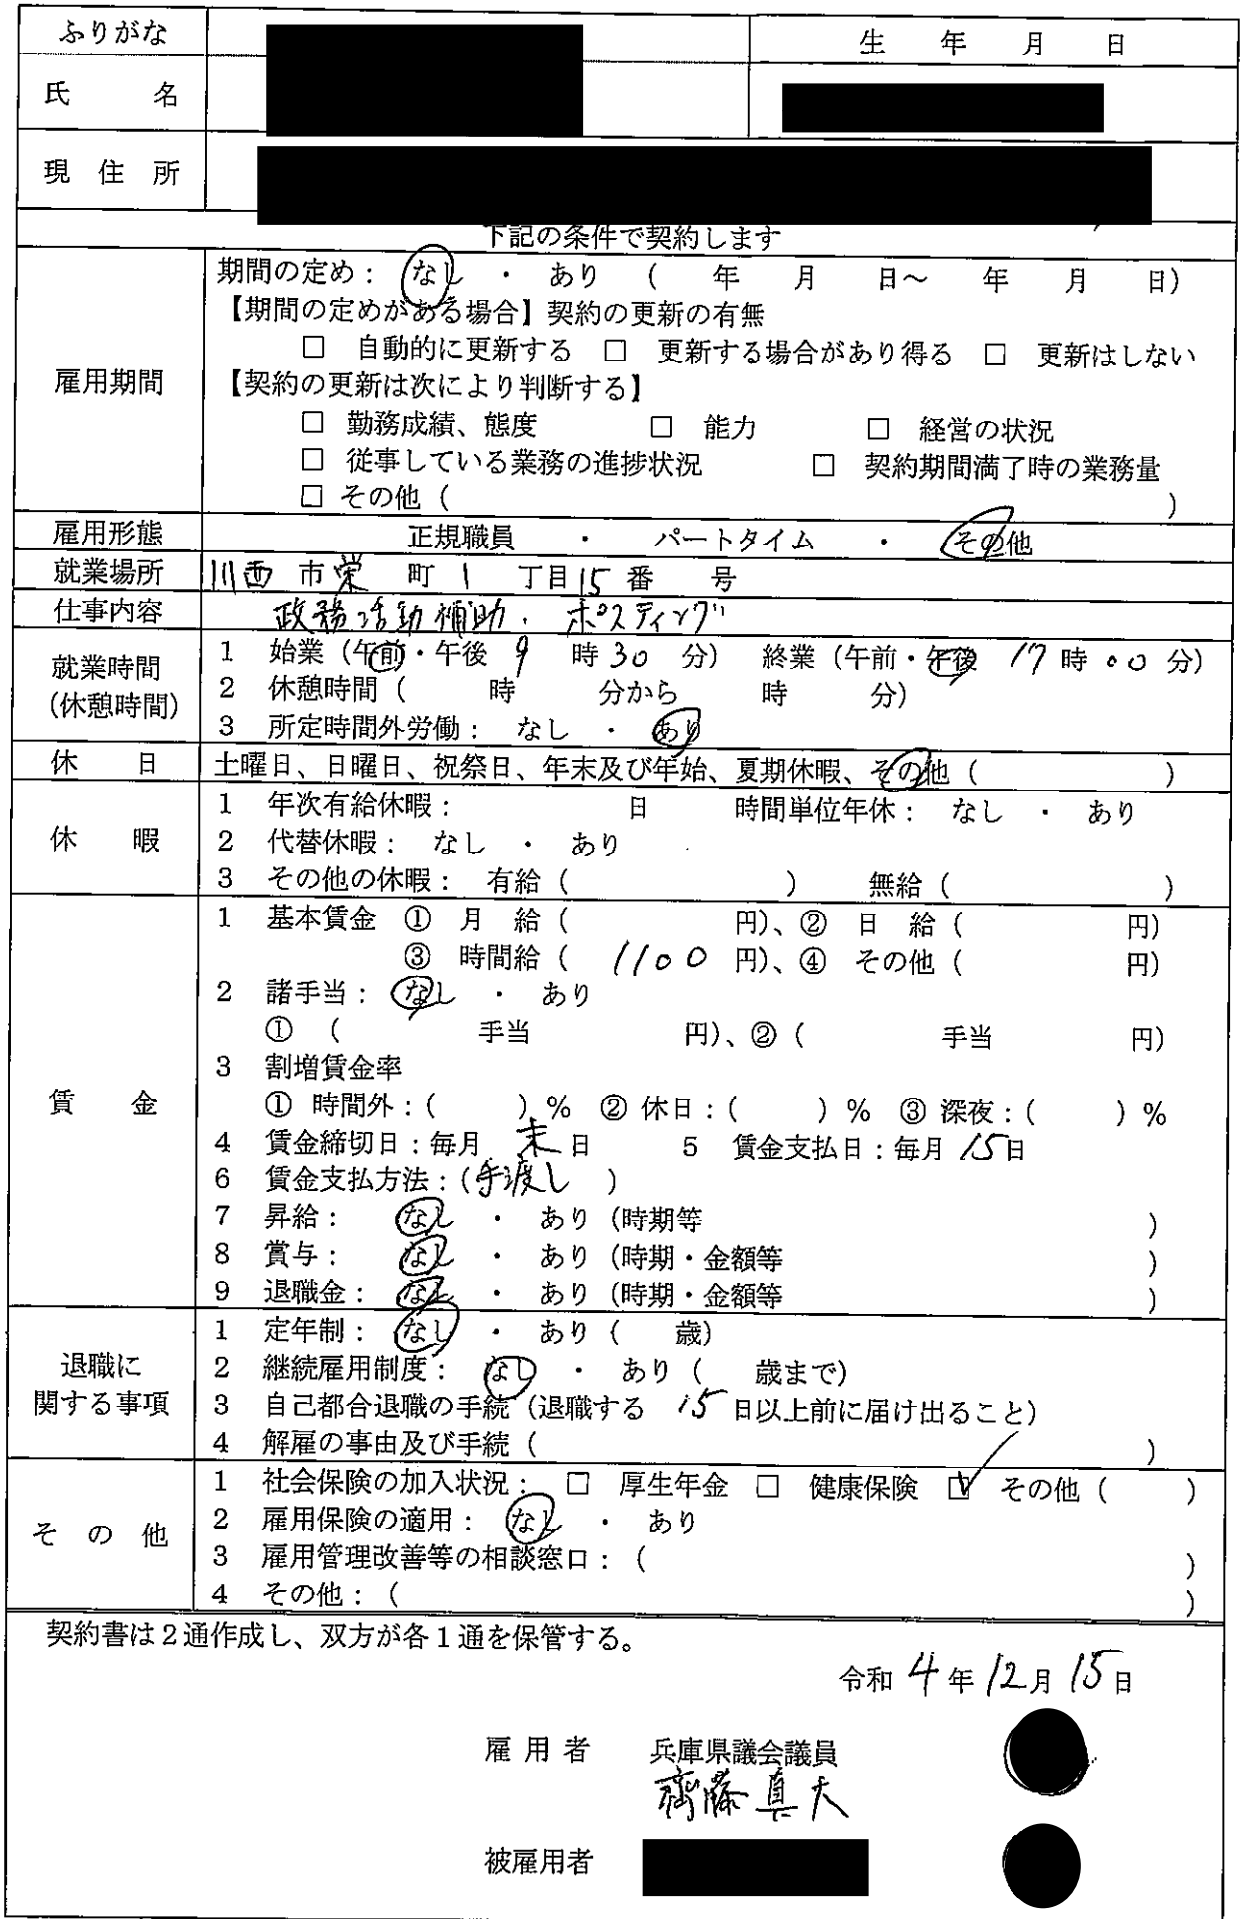 ふりがな
生 年 月 日
氏 名
現 住 所
下記の条件で契約します
雇用期間
期間の定め： なし ・ あり （ 年 月 日～ 年 月 日）
【期間の定めがある場合】契約の更新の有無
□ 自動的に更新する □ 更新する場合があり得る □ 更新はしない
【契約の更新は次により判断する】
□ 勤務成績、態度 □ 能力 □ 経営の状況
□ 従事している業務の進捗状況 □ 契約期間満了時の業務量
□ その他（ ）
雇用形態 正規職員 ・ パートタイム ・ その他
就業場所 川西 市 栄 町 1 丁目 15 番 号
仕事内容 政務活動補助. ポスティング
就業時間
（休憩時間）
1 始業（午前・午後 9 時 30 分） 終業（午前・午後 17 時 00 分）
2 休憩時間（ 時 分から 時 分）
3 所定時間外労働： なし ・ あり
休 日 土曜日、日曜日、祝祭日、年末及び年始、夏期休暇、その他（ ）
休 暇
1 年次有給休暇： 日 時間単位年休： なし ・ あり
2 代替休暇： なし ・ あり
3 その他の休暇： 有給（ ） 無給（ ）
賃 金
1 基本賃金 ① 月 給（ 円）、② 日 給（ 円）
③ 時間給（ 1100 円）、④ その他（ 円）
2 諸手当： なし ・ あり
① （ 手当 円）、②（ 手当 円）
3 割増賃金率
① 時間外：（ ）％ ② 休日：（ ）％ ③ 深夜：（ ）％
4 賃金締切日：毎月 末 日 5 賃金支払日：毎月 15 日
6 賃金支払方法：（手渡し ）
7 昇給： なし ・ あり（時期等 ）
8 賞与： なし ・ あり（時期・金額等 ）
9 退職金： なし ・ あり（時期・金額等 ）
退職に
関する事項
1 定年制： なし ・ あり（ 歳）
2 継続雇用制度： なし ・ あり（ 歳まで）
3 自己都合退職の手続（退職する 15 日以上前に届け出ること）
4 解雇の事由及び手続（ ）
そ の 他
1 社会保険の加入状況： □ 厚生年金 □ 健康保険 ☑ その他（ ）
2 雇用保険の適用： なし ・ あり
3 雇用管理改善等の相談窓口：（ ）
4 その他：（ ）
契約書は２通作成し、双方が各１通を保管する。
令和 4 年 12 月 15 日
雇 用 者 兵庫県議会議員
齊藤真大
被雇用者